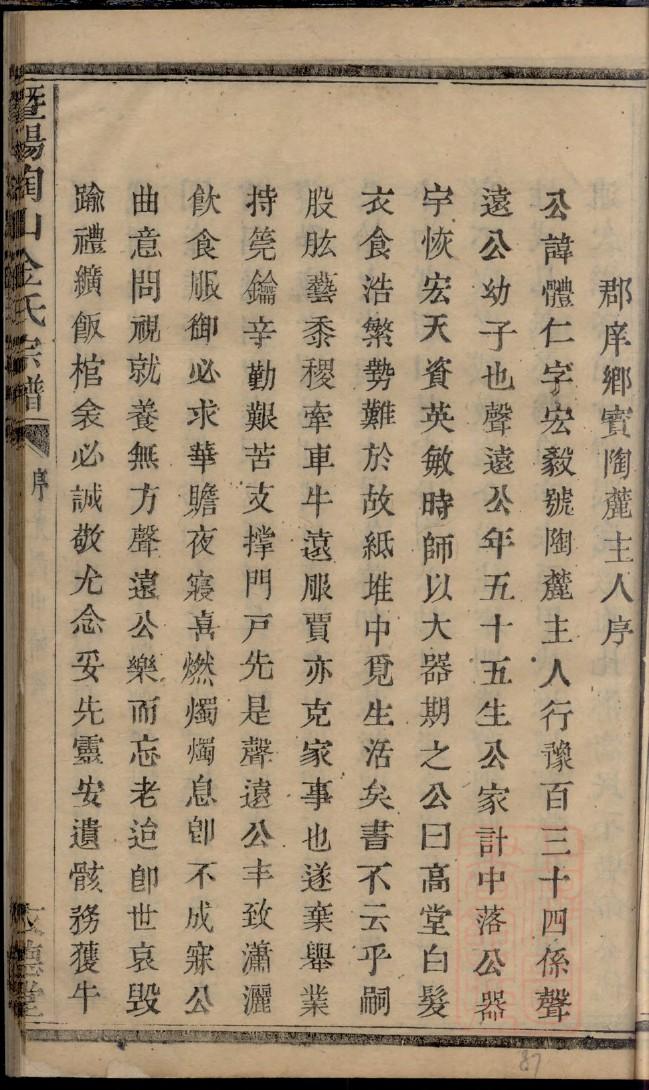 郡庠鄉賓陶麓主人序
公諱體仁字宏毅號陶麓主人行豫百三十四係聲
遠公幼子也聲遠公年五十五生公家計中落公器
宇恢宏天資英敏時師以大器期之公曰高堂白髮
衣食浩繁勢難於故紙堆中覓生活矣書不云乎嗣
股肱藝黍稷牽車牛遠服賈亦克家事也遂棄舉業
持筦鑰辛勤艱苦支撐門戸先是聲遠公丰致瀟灑
飲食服御必求華贍夜寢喜燃燭燭息卽不成寐公
曲意問視就養無方聲遠公樂而忘老迨卽世哀毀
踰禮纊飯棺衾必誠敬尤念妥先靈安遺骸務獲牛
暨陽陶山金氏宗譜
序
文德堂
87